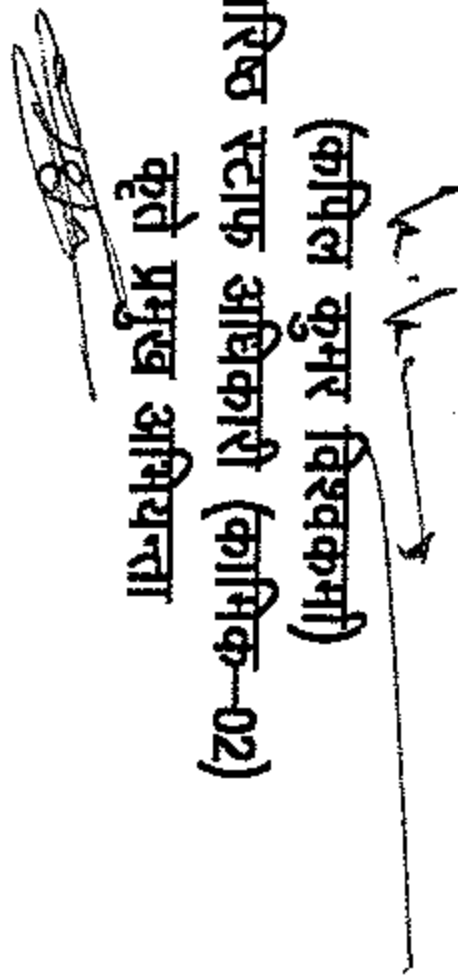 (कपिल कुमार विश्वकर्मा)
रिष्ठ स्टाफ अधिकारी (कार्मिक-02)
कृते प्रमुख अभियन्ता